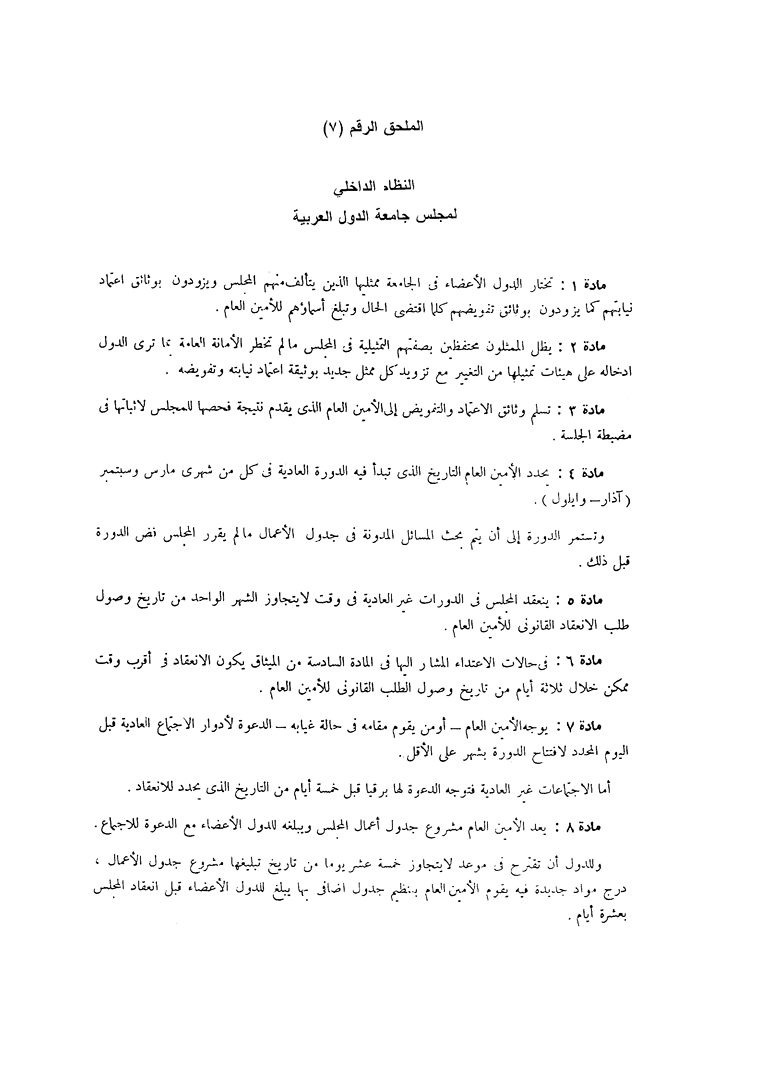 الملحق الرقم (٧)
النظام الداخلي
لمجلس جامعة الدول العربية
مادة ١ : تختار الدول الأعضاء فى الجامعة ممثليها الذين يتألف منهم المجلس ويزودون بوثائق اعتماد
نيابتهم كما يزودون بوثائق تفويضهم كلما اقتضى الحال وتبلغ أسماؤهم للأمين العام .
مادة ٢ : يظل الممثلون محتفظين بصفتهم التمثيلية فى المجلس ما لم تخطر الأمانة العامة بما ترى الدول
ادخاله على هيئات تمثيلها من التغيير مع تزويد كل ممثل جديد بوثيقة اعتماد نيابته وتفويضه .
مادة ٣ : تسلم وثائق الاعتماد والتفويض إلى الأمين العام الذى يقدم نتيجة فحصها للمجلس لاثباتها فى
مضبطة الجلسة .
مادة ٤ : يحدد الأمين العام التاريخ الذى تبدأ فيه الدورة العادية فى كل من شهرى مارس وسبتمبر
(آذار – وايلول) .
وتستمر الدورة إلى أن يتم بحث المسائل المدونة فى جدول الأعمال ما لم يقرر المجلس فض الدورة
قبل ذلك .
مادة ٥ : ينعقد المجلس فى الدورات غير العادية فى وقت لايتجاوز الشهر الواحد من تاريخ وصول
طلب الانعقاد القانونى للأمين العام .
مادة ٦ : فى حالات الاعتداء المشار اليها فى المادة السادسة من الميثاق يكون الانعقاد فى أقرب وقت
ممكن خلال ثلاثة أيام من تاريخ وصول الطلب القانونى للأمين العام .
مادة ٧ : يوجه الأمين العام – أو من يقوم مقامه فى حالة غيابه – الدعوة لأدوار الاجتماع العادية قبل
اليوم المحدد لافتتاح الدورة بشهر على الأقل .
أما الاجتماعات غير العادية فتوجه الدعوة لها برقيا قبل خمسة أيام من التاريخ الذى يحدد للانعقاد .
مادة ٨ : يعد الأمين العام مشروع جدول أعمال المجلس ويبلغه للدول الأعضاء مع الدعوة للاجتماع .
وللدول أن تقترح فى موعد لايتجاوز خمسة عشر يوما من تاريخ تبليغها مشروع جدول الأعمال ،
درج مواد جديدة فيه يقوم الأمين العام بتنظيم جدول اضافى بها يبلغ للدول الأعضاء قبل انعقاد المجلس
بعشرة أيام .